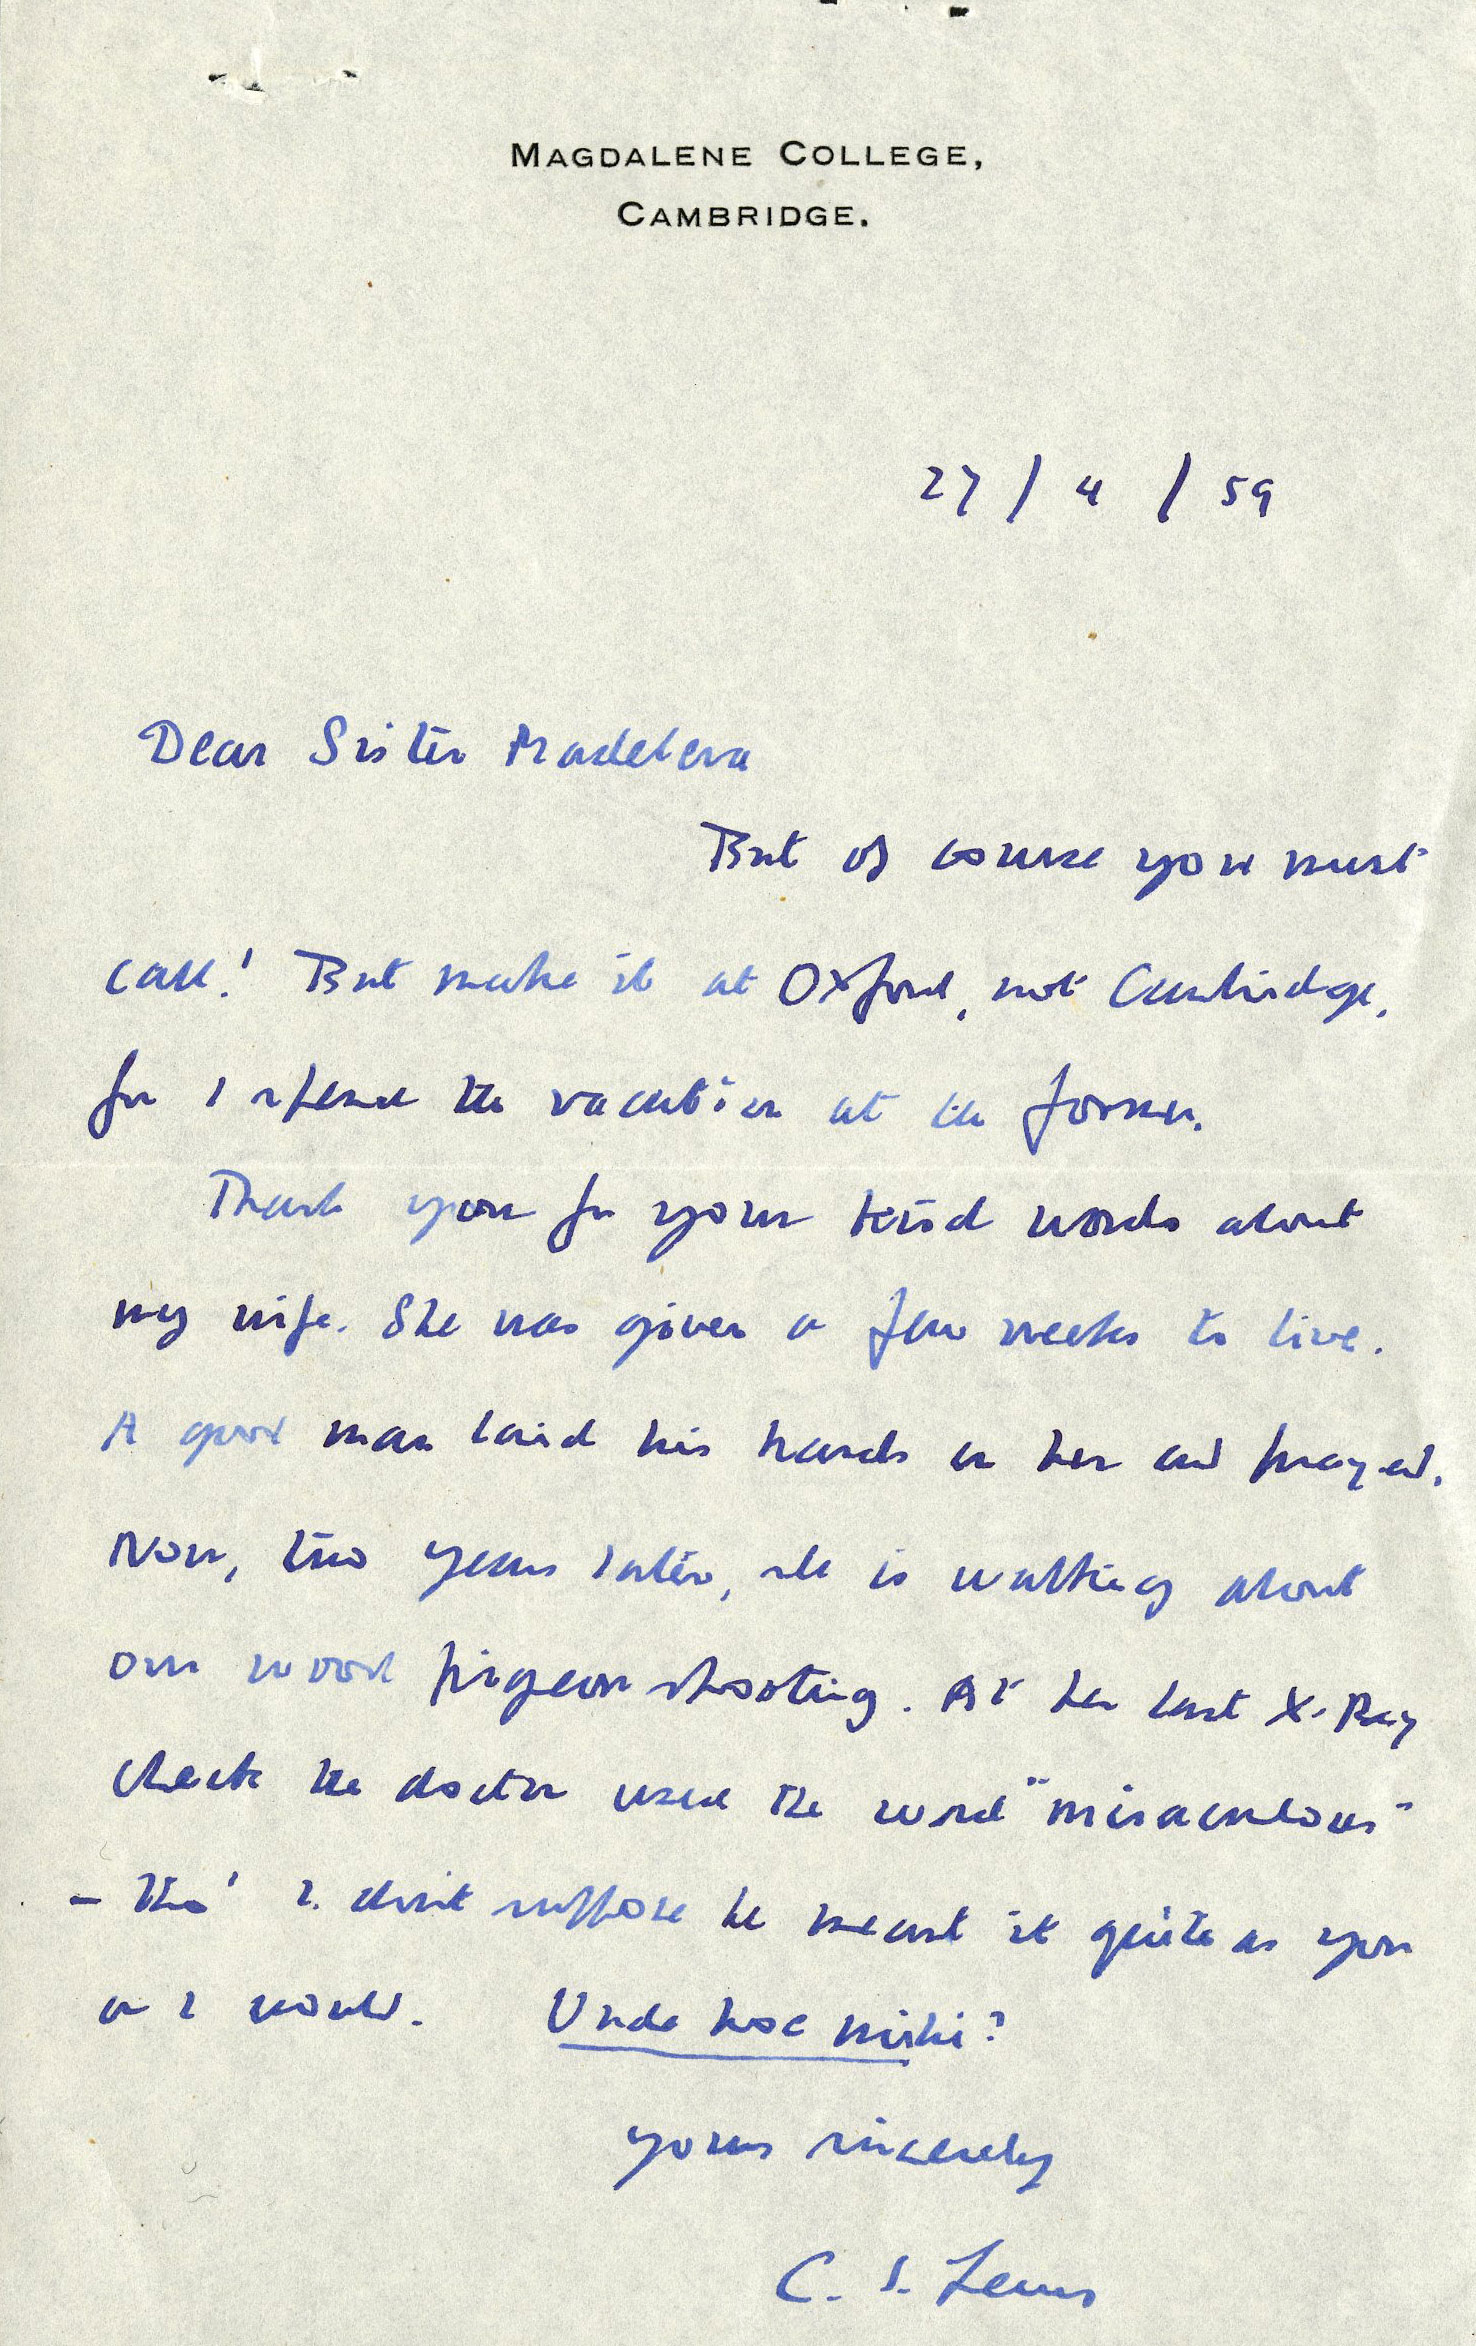 MAGDALENE COLLEGE,
CAMBRIDGE.
27/4/59
Dear Sister Madeleva
But of course you must
call! But make it at Oxford, not Cambridge,
for I spend the vacation at the former.
Thank you for your kind words about
my wife. She was given a few weeks to live.
A good man laid his hands on her and prayed.
Now, two years later, she is walking about
our wood pigeon shooting. At her last X-Ray
check the doctor used the word "miraculous"
– tho' I don't suppose he meant it quite as you
or I would. Unde hoc mihi?
yours sincerely
C. S. Lewis